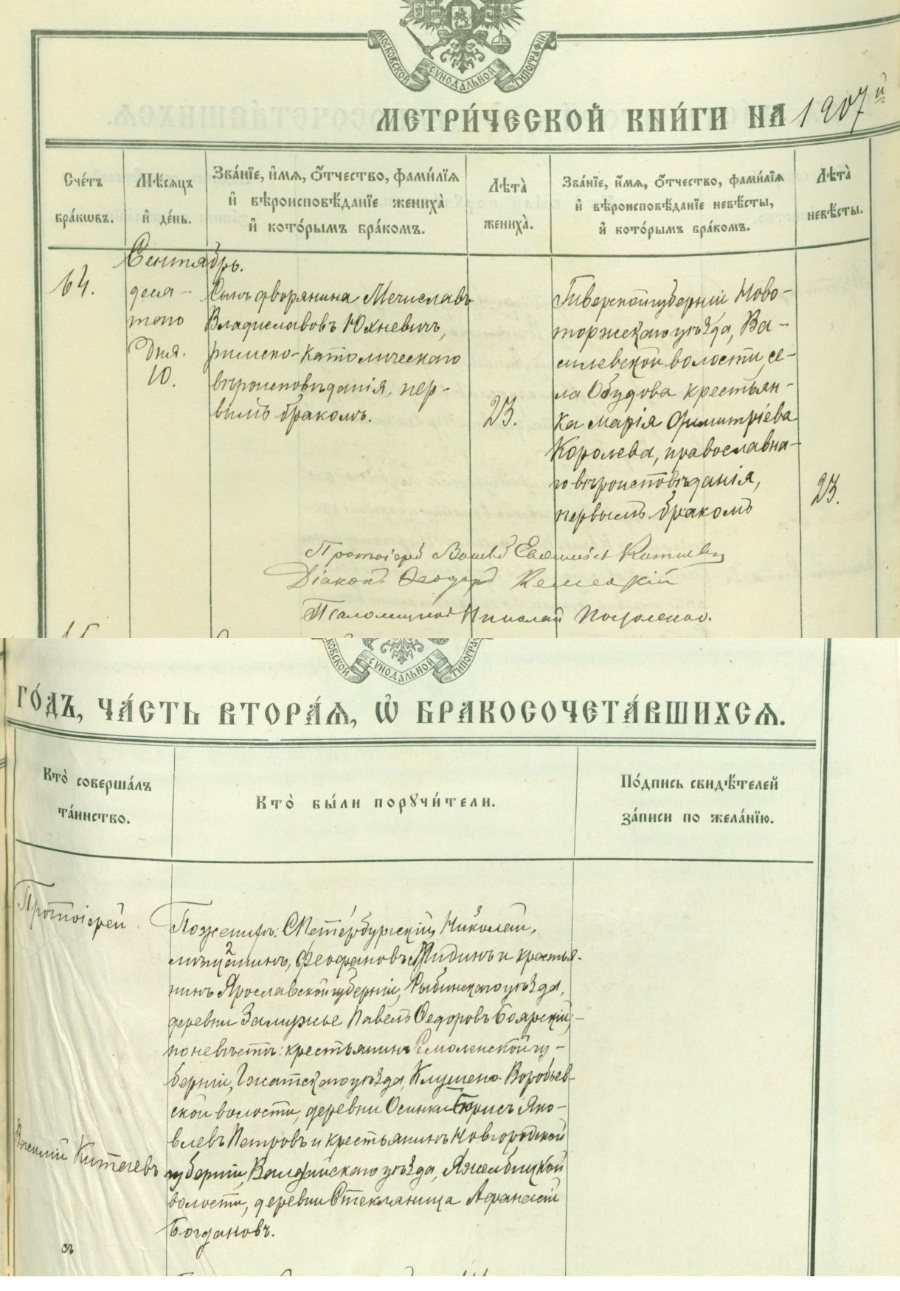 МОСКОВСКОЙ СУНОДАЛЬНОЙ ТИПОГРАФІИ
МЕТРИ́ЧЕСКОЙ КНИ́ГИ НА 1907й
Сче́тъ бра́кѡвъ.
Мѣ́сѧцъ и҆ де́нь.
Зва́нїе, и҆́мѧ, ѻ҆́тчество, фами́лїѧ
и҆ вѣроисповѣ́данїе жениха̀
и҆ кото́рымъ бра́комъ.
Лѣ́та жениха̀.
Зва́нїе, и҆́мѧ, ѻ҆́тчество, фами́лїѧ
и҆ вѣроисповѣ́данїе невѣ́сты,
и҆ кото́рымъ бра́комъ.
Лѣ́та невѣ́сты.
Сентябрь.
64.
деся-
таго
Дня.
10.
Сынъ дворянина Мечиславъ
Владиславовъ Юхневичъ,
римско-католическаго
вѣроисповѣданія, пер-
вымъ бракомъ.
23.
Тверской губерніи Ново-
торжскаго уѣзда, Ва-
силевской волости, се-
ла Обудова крестьян-
ка Марія Димитріева
Королева, православна-
го вѣроисповѣданія,
первымъ бракомъ
23.
Протоіерей
Діаконъ Ѳеодоръ
Псаломщикъ Николай
МОСКОВСКОЙ СУНОДАЛЬНОЙ ТИПОГРАФІИ
ГО́ДЪ, ЧА́СТЬ ВТОРА́Ѧ, Ѡ҆ БРАКОСОЧЕТА́ВШИХСѦ.
Кто̀ соверша́лъ
та́инство.
Кто̀ бы́ли порꙋчи́тели.
По́дпись свидѣ́телей
за́писи по жела́нїю.
Протоіерей
Василій Китаевъ
По женихѣ: СПетербургскій Николай,
мѣщанинъ, Ѳеофановъ и крестья-
нинъ Ярославской губерніи, Рыбинскаго уѣзда,
деревни Залужье Павелъ Ѳедоровъ Боярскій;
по невѣстѣ: крестьянинъ Смоленской гу-
берніи, Гжатскаго уѣзда, Клушено Воробьев-
ской волости, деревни Осинки Борисъ Яко-
влевъ Петровъ и крестьянинъ Новгородской
губерніи, Валдайскаго уѣзда, Яжелбицкой
волости, деревни Стекляница Аѳанасій
Богдановъ.